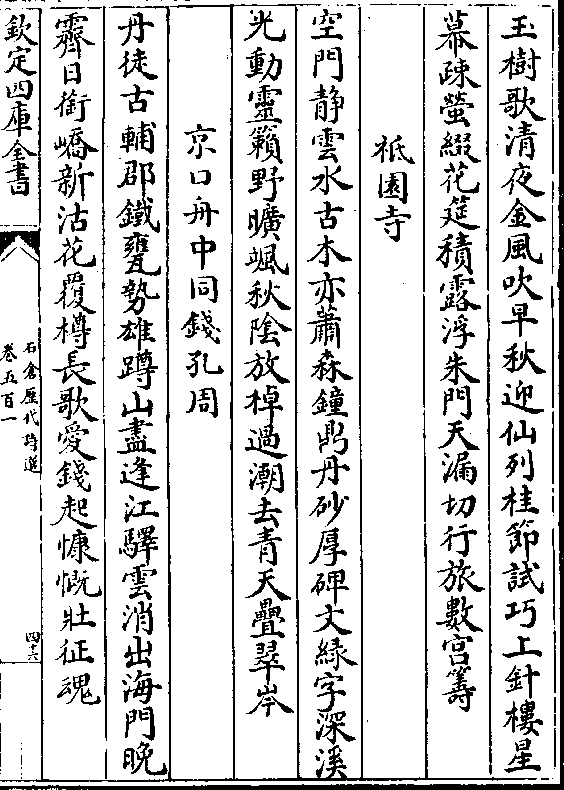 玉樹歌清夜金風吹早秋迎仙列桂節試巧上針樓星
幕疎螢綴花筵積露浮朱門天漏切行旅數宮籌
祇園寺
空門静雲水古木亦蕭森鐘鼎丹砂厚碑文緑字深溪
光動靈籟野曠颯秋陰放棹過潮去青天疊翠岑
京口舟中同錢孔周
丹徒古輔郡鐵甕勢雄蹲山盡逢江驛雲消出海門晩
霽日銜嶠新沽花覆樽長歌愛錢起慷慨壯征魂
欽定四庫全書
石倉歴代詩選
卷五百一
四十六